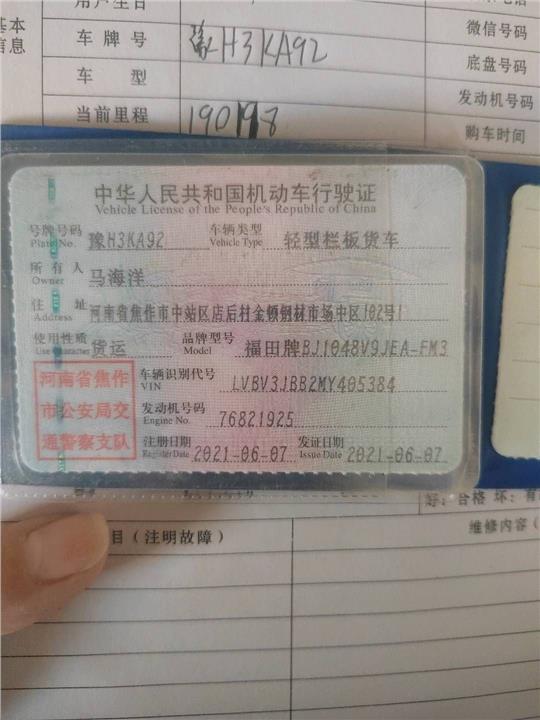 用户生日
基本
信息
车牌号 豫H3KA92
微信号码
车 型
底盘号码
发动机号码
当前里程 190198
购车时间
中华人民共和国机动车行驶证
Vehicle License of the People's Republic of China
号牌号码 豫H3KA92 车辆类型 轻型栏板货车
Plate No. Vehicle Type
所有人 马海洋
Owner
住 址 河南省焦作市中站区店后村金顿钢材市场中区102号1
Address
使用性质 货运 品牌型号 福田牌BJ1048V9JEA-FM3
Use Character Model
河南省焦作
市公安局交
通警察支队
车辆识别代号 LVBV3JBB2MY405384
VIN
发动机号码 76821925
Engine No.
注册日期 2021-06-07 发证日期 2021-06-07
Register Date Issue Date
好：合格 坏：
目（注明故障）
维修内容（